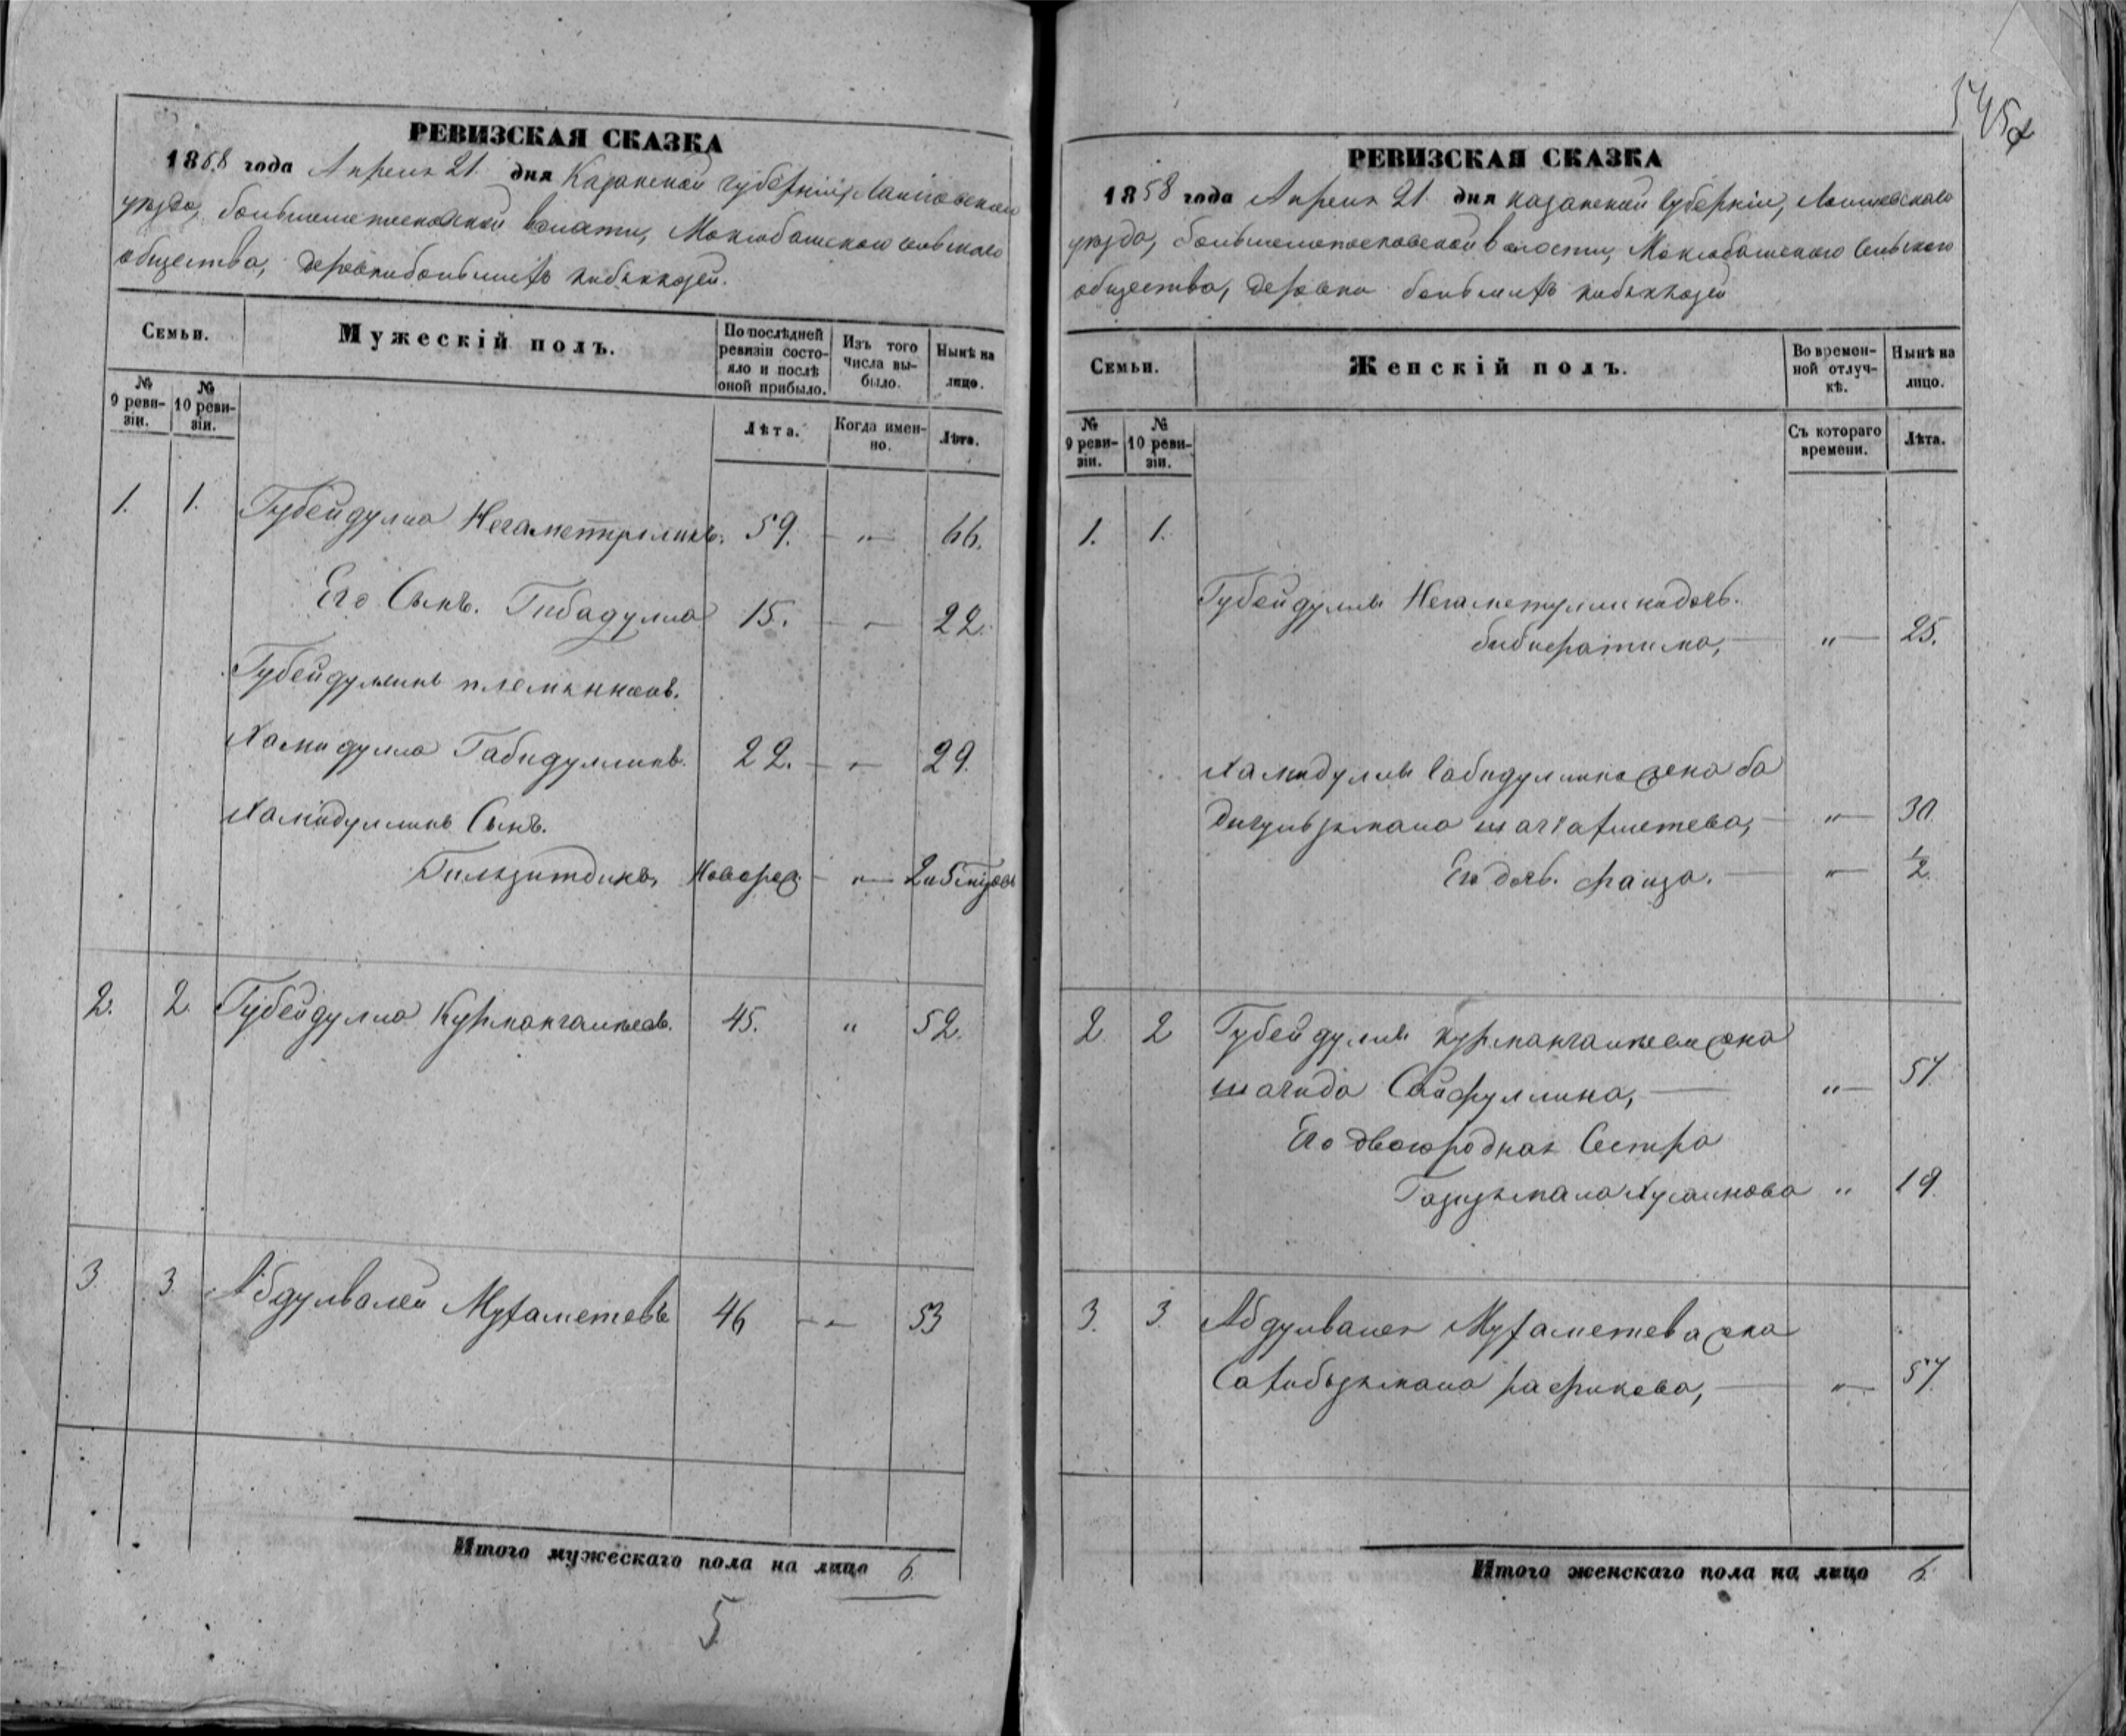 545
РЕВИЗСКАЯ СКАЗКА
1858 года Апреля 21 дня Казанской губерніи, Лаишевскаго
уезда, волости, сельскаго
общества, деревни большихъ
Семьи.
Мужескій полъ.
По послѣдней ревизіи состояло и послѣ оной прибыло.
Изъ того числа выбыло.
Нынѣ на лицо.
№ 9 ревизіи.
№ 10 ревизіи.
Лѣта.
Когда именно.
Лѣта.
1. 1. Губейдулла 59. — „ — 66.
Его Сынъ. Гибадулла 15. — „ — 22.
Губейдуллинъ племянникъ.
Хамидулла Габидуллинъ. 22. — „ — 29.
Хамидуллинъ Сынъ.
Новорож. — „ —
2. 2 Губейдулла Курмангалеевъ. 45. „ 52.
3. 3 Абдулвалей Мухаметевъ 46 — „ — 53
Итого мужескаго пола на лицо 6.
5
РЕВИЗСКАЯ СКАЗКА
1858 года Апреля 21 дня казанской Губерніи, Лаишевскаго
уезда, волости, Сельскаго
общества, деревни большихъ
Семьи.
Женскій полъ.
Во временной отлучкѣ.
Нынѣ на лицо.
№ 9 ревизіи.
№ 10 ревизіи.
Съ котораго времени.
Лѣта.
1. 1.
Губейдуллы дочь.
бибифатима, — „ — 25.
Хамидуллы Габидуллина жена ба
— „ — 30.
Его дочь. фаиза. — „ — 1/2
2. 2 Губейдуллы Курмангалеева жена
шагида Сайфуллина, — „ — 57.
Его двоюродная Сестра
Хусаинова „ 19.
3. 3. Абдулвалея Мухаметева жена
рафикова, — „ — 57.
Итого женскаго пола на лицо 6.